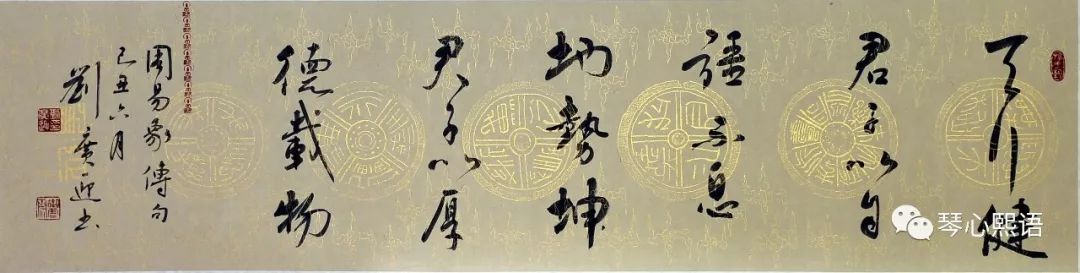 天行健
君子以自
强不息
地势坤
君子以厚
德載物
周易象傳句
己丑六月
劉廣迎书
琴心熙语